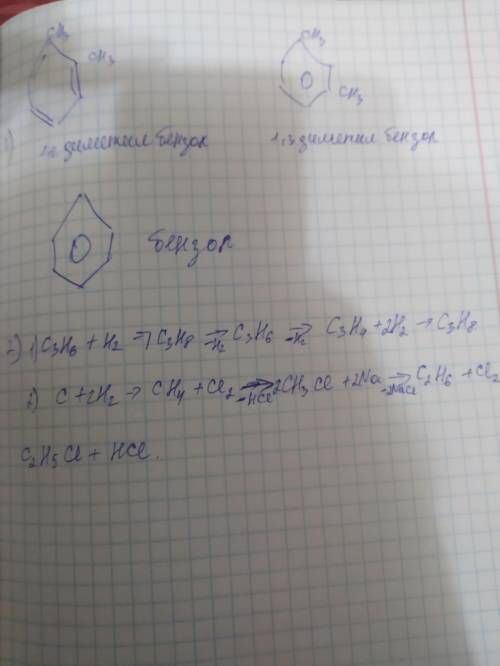 CH₃ CH₃
CH₃ CH₃
1) 1,2 диметил бензол 1,3 диметил бензол
бензол
2) 1) C₃H₆ + H₂ → C₃H₈ →-H₂ C₃H₆ →-H₂ C₃H₄ + 2H₂ → C₃H₈
2) C + 2H₂ → CH₄ + Cl₂ →-HCl 2CH₃Cl + 2Na →-2NaCl C₂H₆ + Cl₂
C₂H₅Cl + HCl.